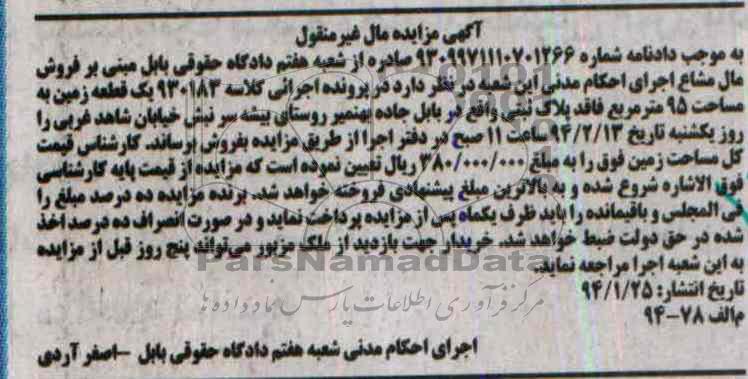 آگهی مزایده مال غیر منقول
به موجب دادنامه شماره ۹۳۰۹۹۷۱۱۱۰۷۰۱۲۶۶ صادره از شعبه هفتم دادگاه حقوقی بابل مبنی بر فروش
مال مشاع اجرای احکام مدنی این شعبه در نظر دارد در پرونده اجرائی کلاسه ۹۳۰۱۸۳ یک قطعه زمین به
مساحت ۹۵ متر مربع فاقد پلاک ثبتی واقع در بابل جاده بهنمیر روستای بیشه سر نبش خیابان شاهد غربی را
روز یکشنبه تاریخ ۹۴/۲/۱۳ ساعت ۱۱ صبح در دفتر اجرا از طریق مزایده بفروش برساند. کارشناس قیمت
کل مساحت زمین فوق را به مبلغ ۳۸۰/۰۰۰/۰۰۰ ریال تعیین نموده است که مزایده از قیمت پایه کارشناسی
فوق الاشاره شروع شده و به بالاترین مبلغ پیشنهادی فروخته خواهد شد. برنده مزایده ده درصد مبلغ را
فی المجلس و باقیمانده را باید ظرف یکماه پس از مزایده پرداخت نماید و در صورت انصراف ده درصد اخذ
شده در حق دولت ضبط خواهد شد. خریدار جهت بازدید از ملک مزبور می‌تواند پنج روز قبل از مزایده
به این شعبه اجرا مراجعه نماید.
ParsNamadData
تاریخ انتشار: ۹۴/۱/۲۵
مرکز فرآوری اطلاعات پارس نماد داده ها
م‌الف ۷۸–۹۴
اجرای احکام مدنی شعبه هفتم دادگاه حقوقی بابل –اصغر آردی